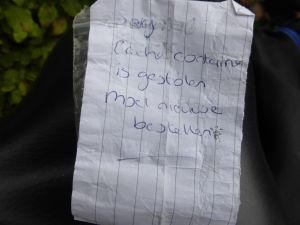 Sorry
Cache container
is gestolen
moet nieuwe
bestellen